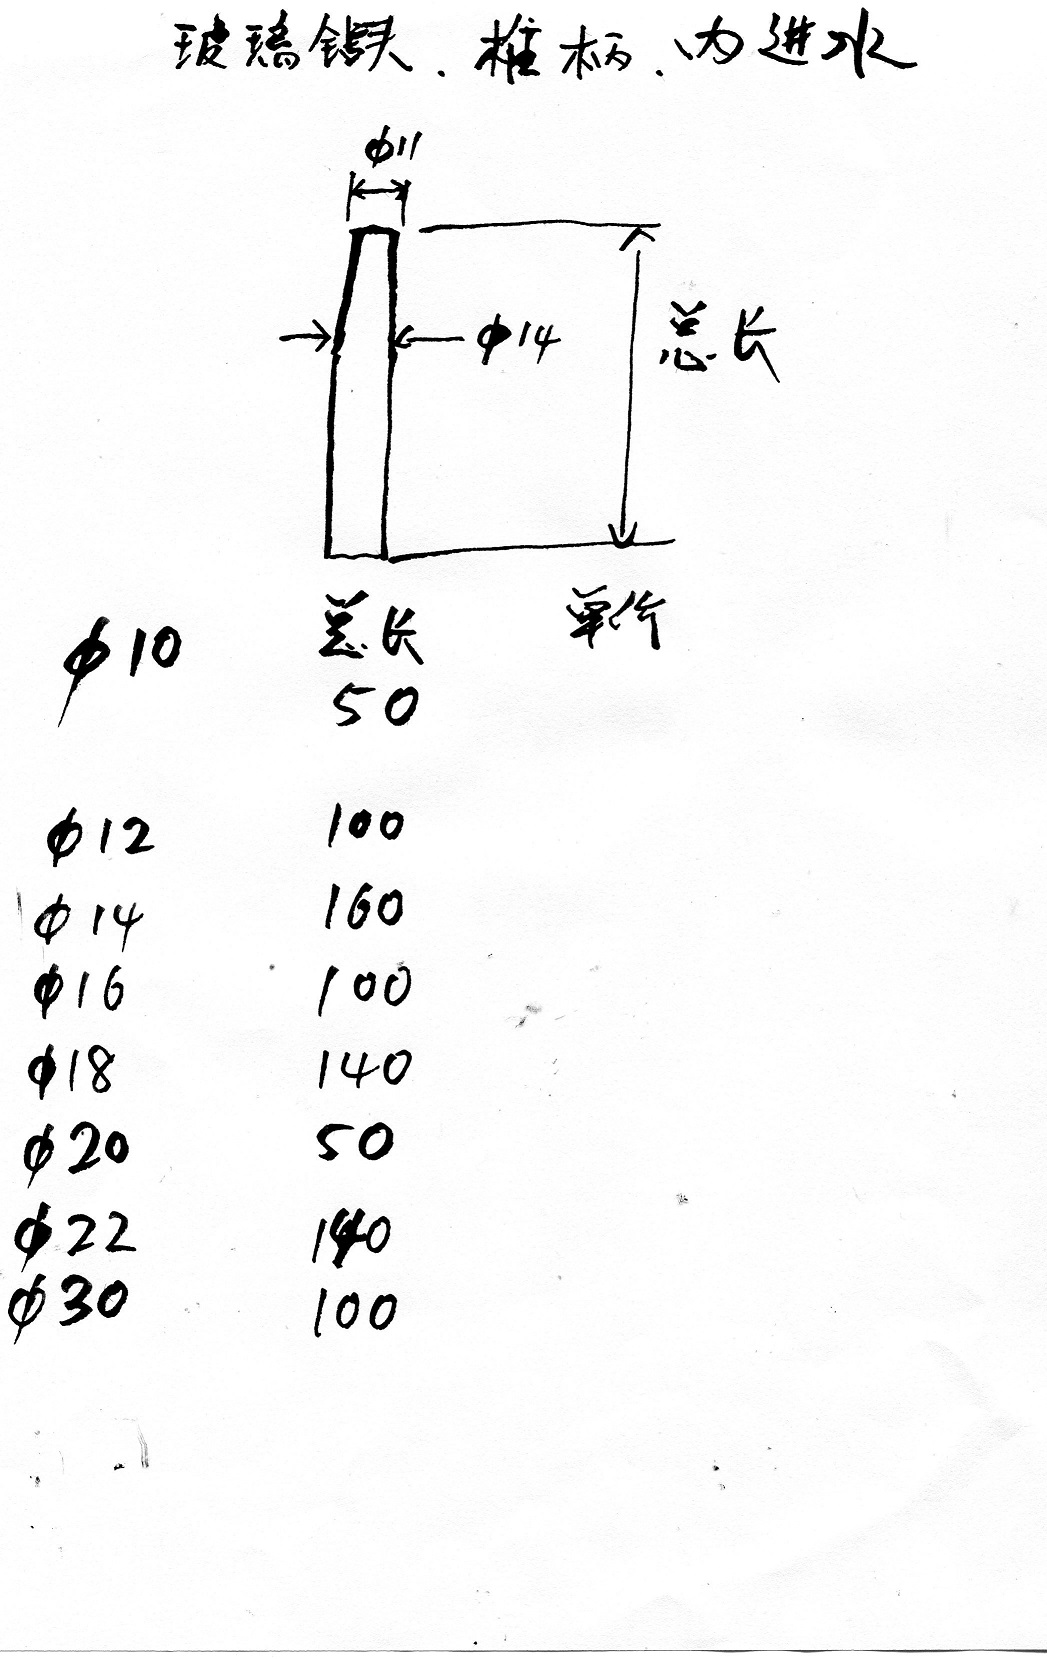 玻璃钻头.椎柄.内进水
φ11
φ14
总长
φ10 总长 单价
50
φ12 100
φ14 160
φ16 100
φ18 140
φ20 50
φ22 140
φ30 100